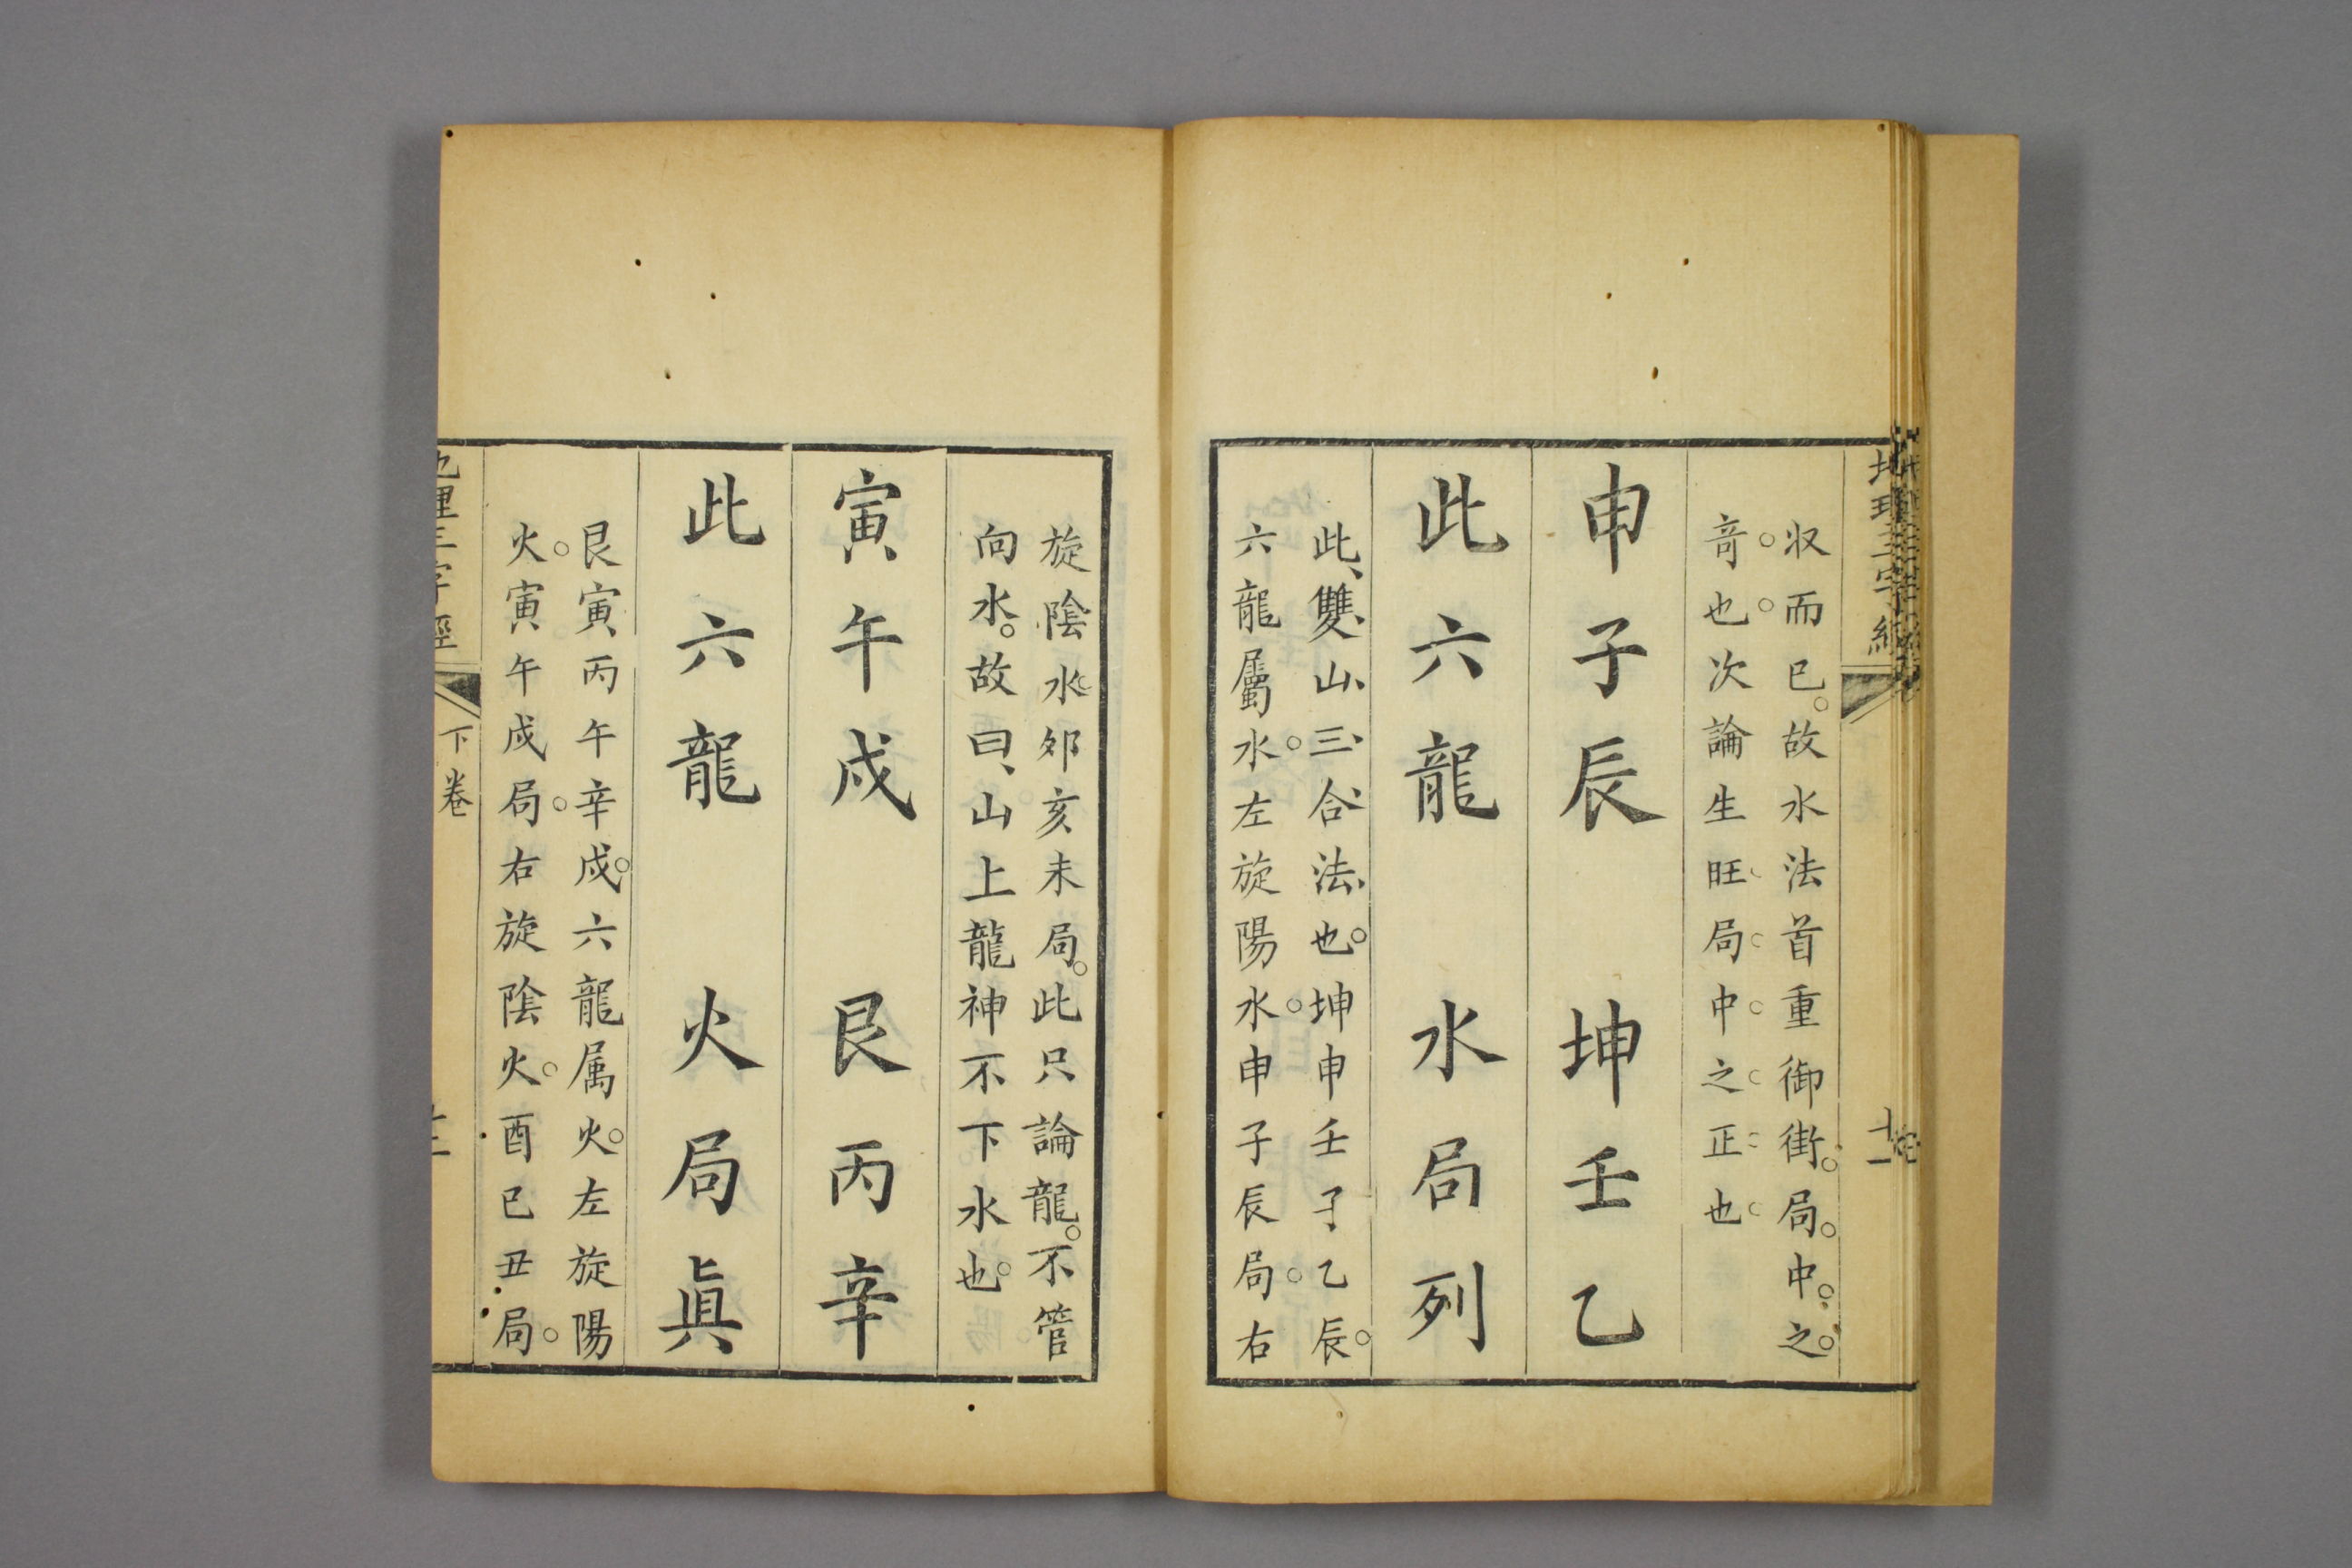 地理三字經
十一
收而已。故水法首重御街。局中之
竒也。次論生旺局中之正也
申子辰　坤壬乙
此六龍　水局列
此雙山三合法也。坤申壬子乙辰。
六龍屬水。左旋陽水。申子辰局。右
旋陰水夘亥未局。此只論龍。不管
向水。故曰、山上龍神不下水也。
寅午戍　艮丙辛
此六龍　火局眞
艮寅丙午辛戍。六龍属火。左旋陽
火。寅午戍局。右旋陰火。酉巳丑局。
地理三字經
下卷
十二